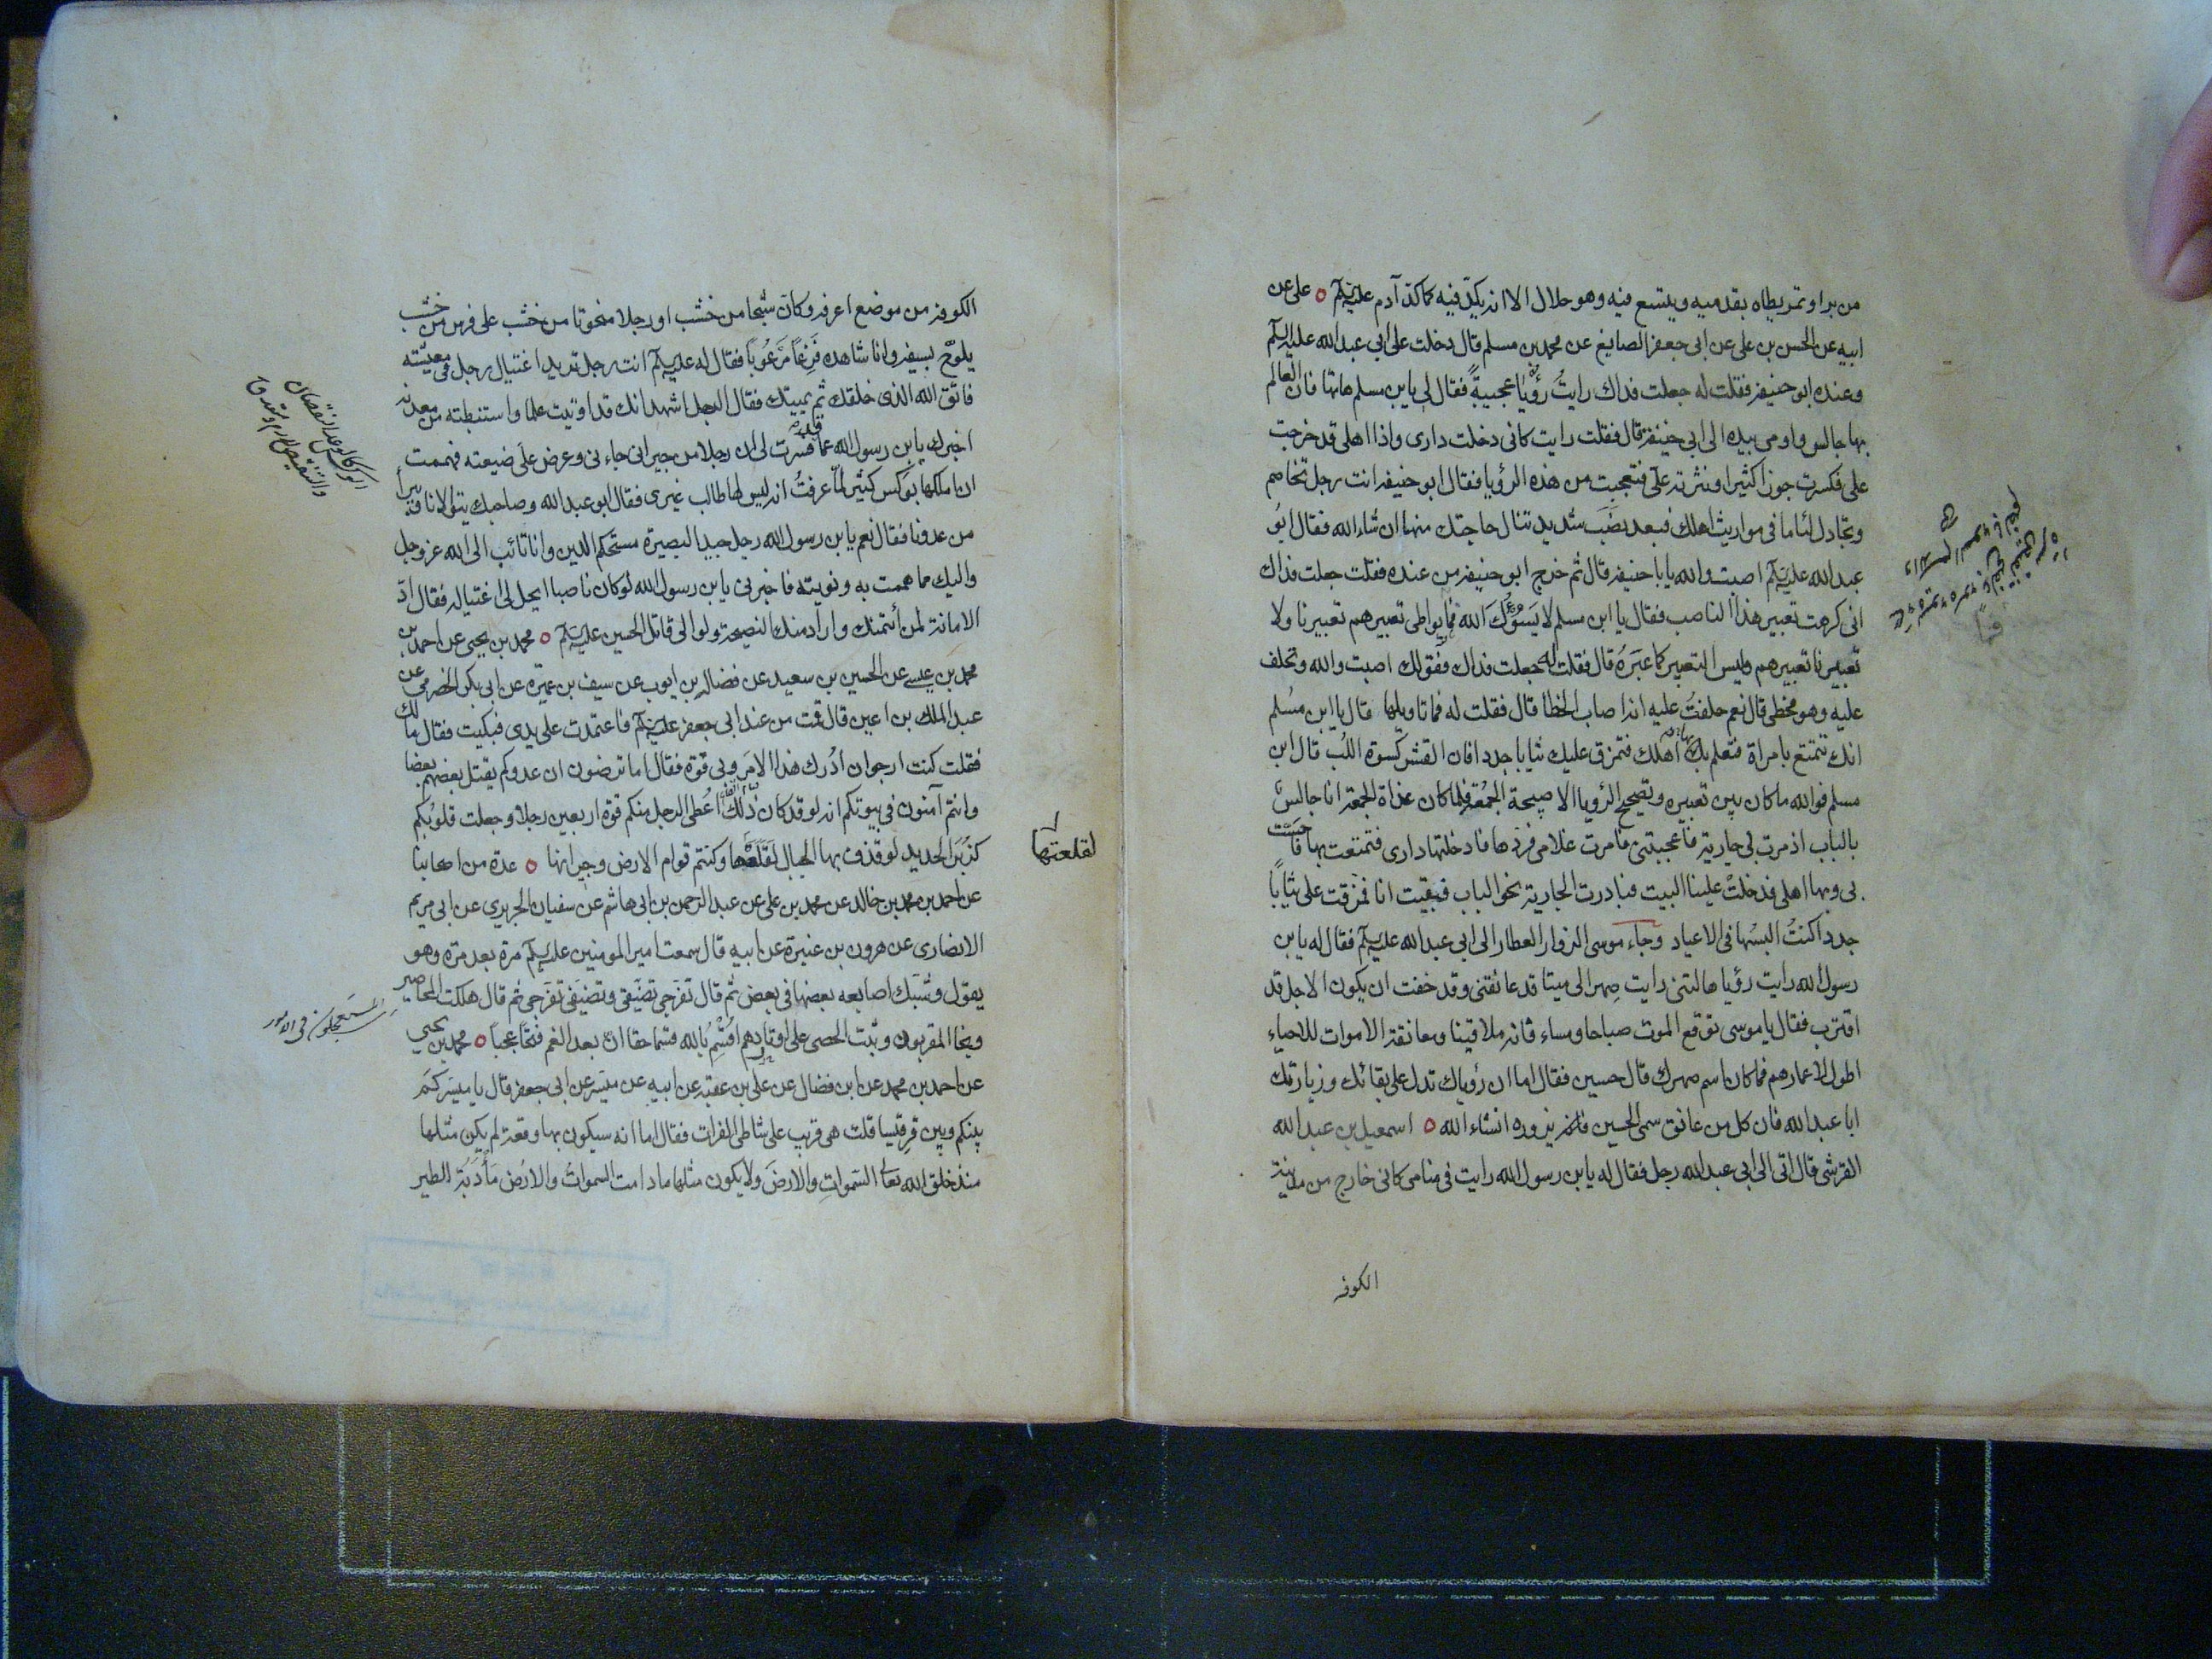 من بر او تمر يطاه بقدميه ويتسع فيه وهو حلال الا انه يكدّ فيه كما كدّ آدم عليه السلم ٥ على عن
ابيه عن الحسن بن على عن ابى جعفر الصايغ عن محمد بن مسلم قال دخلت على ابى عبد الله عليه السلم
وعنده ابو حنيفه فقلت له جعلت فداك رايتُ رؤيا عجيبةً فقال لى يا بن مسلم هاتها فان العالم
بها جالس واومى بيده الى ابى حنيفه قال فقلت رايت كانى دخلت دارى واذا اهلى قد خرجت
على فكسرت جوزا كثيرا ونثرته علَى فتعجبت من هذه الرؤيا فقال ابو حنيفه انت رجل تخاصم
وتجادل لئاما فى مواريث اهلك فبعد نصَب شديد تنال حاجتك منها ان شاء الله فقال ابو
عبد الله عليه السلم اصبت والله يا با حنيفه قال ثم خرج ابو حنيفه من عنده فقلت جعلت فداك
انى كرهت تعبير هذا الناصب فقال يا ابن مسلم لا يَسُؤْكَ الله فما يواطى تعبيرهم تعبيرنا ولا
تعبيرنا تعبيرهم وليس التعبير كما عبَرهُ قال فقلت له جعلت فداك فقولك اصبت والله وتحلف
عليه وهو مخطى قال نعم حلفتُ عليه انه اصاب الخطا قال فقلت له فما تاويلها قال يا ابن مُسلم
انك تتمتع بامراة فتعلم بها اهلك فتمزق عليك ثيابا جددا فان القشر كسوة اللُب قال ابن
مسلم فوالله ما كان بين تعبيره وتصحيح الرؤيا الا صبيحة الجمعة فلما كان غداة الجمعة انا جالسٌ
بالباب اذ مرت بى جارية فاعجبتنى فامرت غلامى فردّها فادخلتها دارى فتمتعت بها فاحسّت
بى وبها اهلى فدخلتْ علينا البيت فبادرت الجارية نحو الباب فبقيت انا فمزقت على ثيابًا
جددا كنتُ البسُها فى الاعياد وجاء موسى الزوار العطار الى ابى عبد الله عليه السلم فقال له يا بن
رسول الله رايت رؤيا هالتنى رايت صِهرا لى ميتا قد عانقنى وقد خفت ان يكون الاجل قد
اقترب فقال يا موسى توقع الموت صباحا ومساء فانه ملاقينا ومعانقة الاموات للاحياء
اطول لاعمارهم فما كان اسم صهرك قال حسين فقال اما ان رؤياك تدل على بقائك وزيارتك
ابا عبد الله فان كل من عانق سمى الحسين فانه يزوره انشاء الله ٥ اسمعيل بن عبد الله
القرشى قال اتى الى ابى عبد الله رجل فقال له يا بن رسول الله رايت فى منامى كانى خارج من مدينة
الكوفه
الكوفه من موضع اعرفه وكان شبحا من خشب او رجلا منحوتا من خشب على فرس من خشب
يلوّح بسيفه وانا شاهده فَزِعًا مَرْعُوبًا فقال له عليه السلم انت رجل تريد اغتيال رجل فى معيشته
فاتق الله الذى خلقك ثم يميتك فقال الرجل اشهد انك قد اوتيت علما واستنبطته من معدنه
اخبرك يا بن رسول الله عما فسّرت لى ان رجلا من جيرانى جاءنى وعرض علَى ضيعته فهممت
ان املكها بوَكس كثير لمّا عرفتُ انه ليس لها طالب غيرى فقال ابو عبد الله وصاحبك يتولانا ويبرأ
من عدونا فقال نعم يا بن رسول الله رجل جيد البصيرة مستحكم الدين وانا تائب الى الله عز وجل
واليك مما هممت به ونويته فاخبرنى يا بن رسول الله لو كان ناصبا ايحل لى اغتياله فقال ادّ
الامانة لمن أتمنك واراد منك النصيحة ولو الى قاتل الحسين عليه السلم ٥ محمد بن يحيى عن احمد بن
محمد بن عيسى عن الحسين بن سعيد عن فضالة بن ايوب عن سيف بن عميرة عن ابى بكر الحضرمى عن
عبد الملك بن اعين قال قمت من عند ابى جعفر عليه السلم فاعتمدت على يدى فبكيت فقال ما لك
فقلت كنت ارجو ان أدرك هذا الامَر وبى قوّة فقال اما ترضون ان عدوكم يقتل بعضهم بعضا
وانتم آمنون فى بيوتكم انه لو قد كان ذلك أُعطى الرجل منكم قوة اربعين رجلا وجعلت قلوبُكم
كزُبَر الحديد لو قذف بها الجبال لقلعتها وكنتم قوام الارض وجيرانها ٥ عدة من اصحابنا
لقلعتها
عن احمد بن محمد بن خالد عن محمد بن على عن عبد الرحمن بن ابى هاشم عن سفيان الجريرى عن ابى مريم
الانصارى عن هرون بن عنترة عن ابيه قال سمعت امير المومنين عليه السلم مرة بعد مرة وهو
يقول وشبك اصابعه بعضها فى بعض ثم قال تفرّجى تضيّقى وتضيّقى تفرّجى ثم قال هلكت المحاصير
المستعجلون فى الامور
ونجا المقربون وثبت الحصى على اوتادهم أُقسِمُ بالله قسما حقا انّ بعد الغم فتحًا عجبًا ٥ محمد بن يحيى
عن احمد بن محمد عن ابن فضال عن على بن عقبة عن ابيه عن ميسّر عن ابى جعفر قال يا ميسّر كم
بينكم وبين قرقيسا قلت هى قريب على شاطى الفرات فقال اما انه سيكون بها وقعة لم يكن مثلها
منذ خلق الله تعالى السَمواتِ والارضَ ولا يكون مثلها ما دامت السمواتُ والارُض مَأْدُبَة الطير